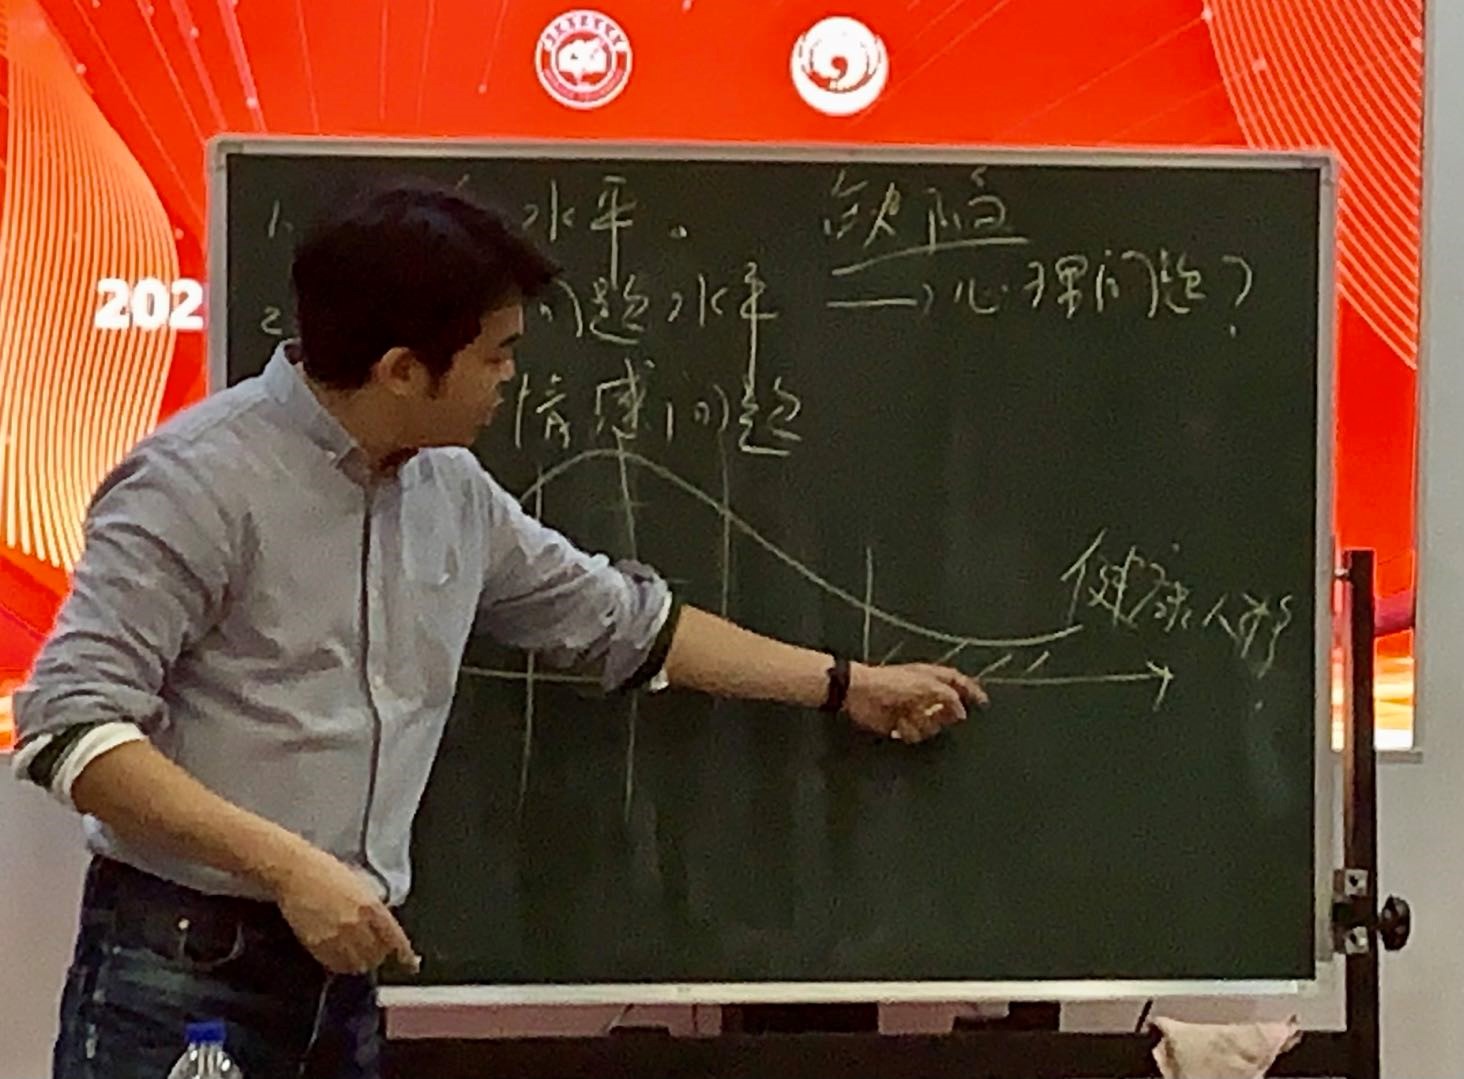 202
1. 水平. 缺陷
2. 问题水平 → 心理问题?
情感问题
健康人群